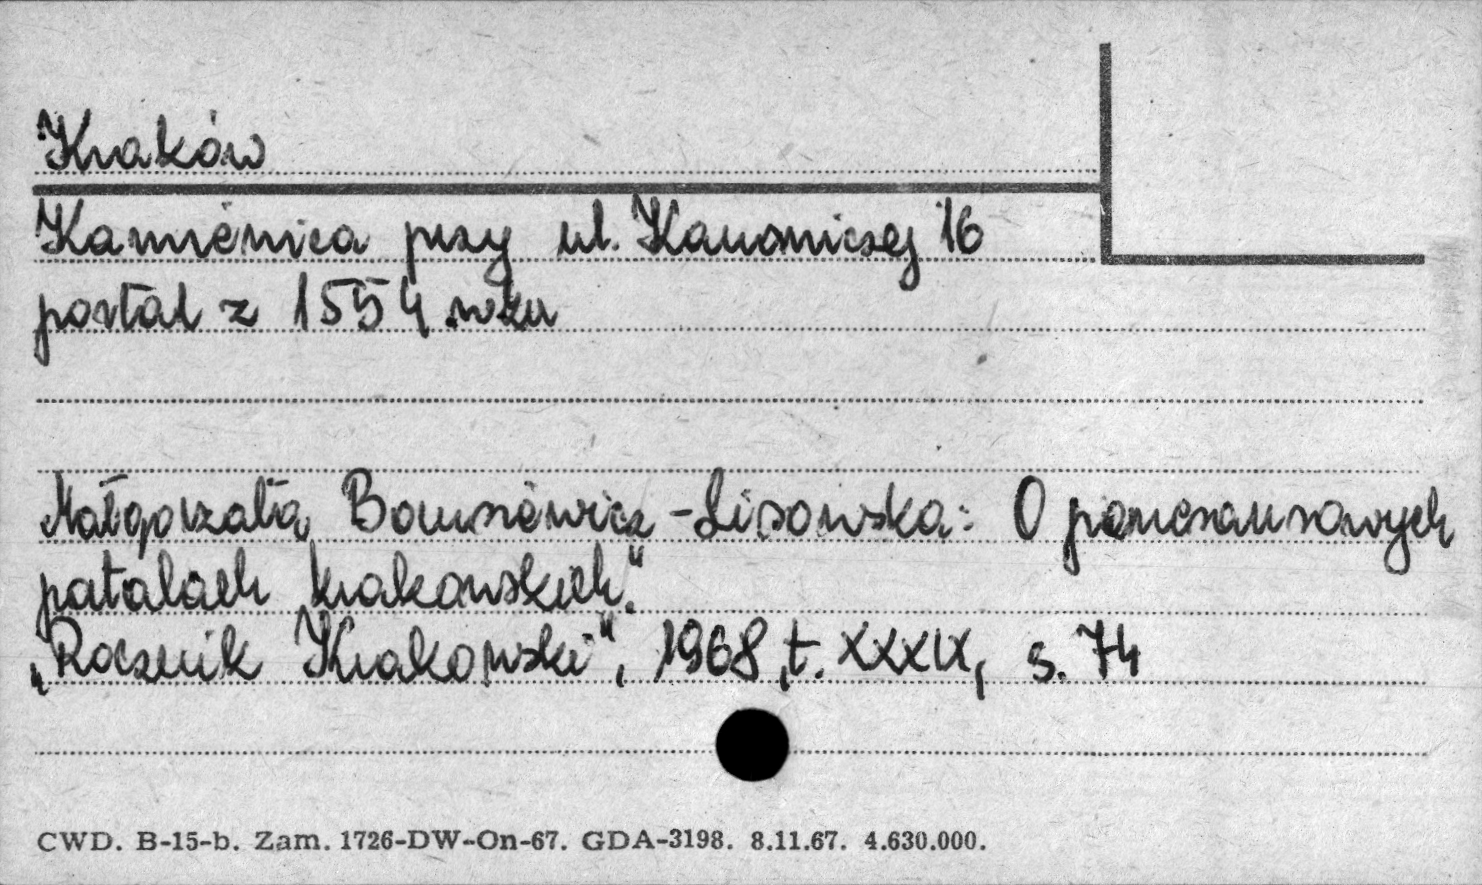 Kraków
Kamienica przy ul. Kanoniczej 16
portal z 1554 roku
Małgorzata Borusiewicz-Lisowska: O renesansowych
patalach krakowskich."
„Rocznik Krakowski", 1968, t. XXXIX, s. 74
CWD. B-15-b. Zam. 1726-DW-On-67. GDA-3198. 8.11.67. 4.630.000.